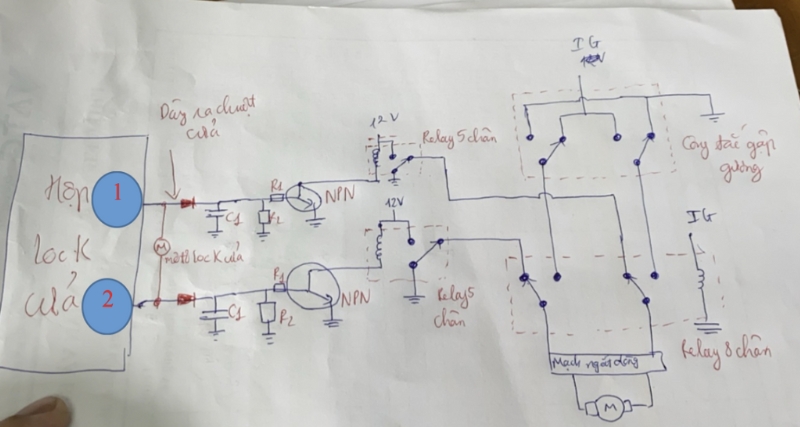 IG
12V
12V
Dây ra chuột
cửa
Relay 5 chân
Công tắc gập
gương
Hộp
1
R1
NPN
C1
R2
12V
IG
lock
M
môtơ lock cửa
cửa
2
R1
NPN
C1
R2
Relay 5
chân
Relay 8 chân
Mạch ngắt dòng
M